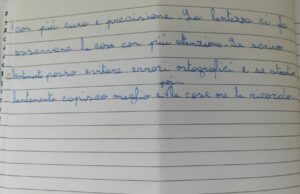 con più cura e precisione. La lentezza ci fa
osservare le cose con più attenzione. Se scrivo
posso evitare errori ortografici e se studio
lentamente capisco meglio e poi le cose me le ricordo.